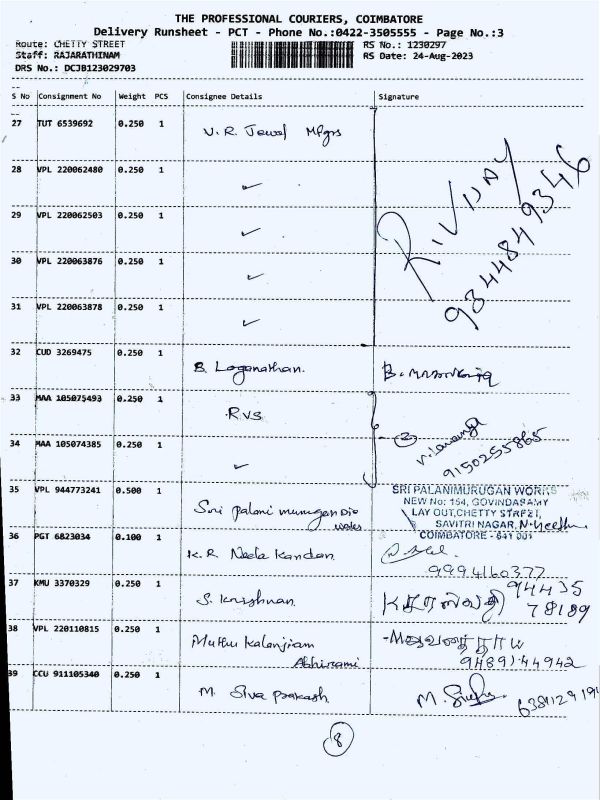 THE PROFESSIONAL COURIERS, COIMBATORE
Delivery Runsheet - PCT - Phone No.:0422-3505555 - Page No.:3
Route: CHETTY STREET RS No.: 1230297
Staff: RAJARATHINAM RS Date: 24-Aug-2023
DRS No.: DCJB123029703
S No Consignment No Weight PCS Consignee Details Signature
27 TUT 6539692 0.250 1 V. R. Jewel Mfgrs
28 VPL 220062480 0.250 1 ✓
R. VIJAY
9344849346
29 VPL 220062503 0.250 1 ✓
30 VPL 220063876 0.250 1 ✓
31 VPL 220063878 0.250 1 ✓
32 CUD 3269475 0.250 1 B. Loganathan.
33 MAA 105075493 0.250 1 RVS
2
9150255865
34 MAA 105074385 0.250 1 ✓
35 VPL 944773241 0.500 1 Sri palani murugan Die
works
SRI PALANIMURUGAN WORKS
NEW No: 154, GOVINDASAMY
LAY OUT, CHETTY STREET,
SAVITRI NAGAR,
COIMBATORE - 641 001
36 PGT 6823034 0.100 1 K. R. Neela Kandan
9994160377
37 KMU 3370329 0.250 1 S. Krishnan
94435
78189
38 VPL 220110815 0.250 1 Muthu Kalanjiam
Abhirami
9489144942
39 CCU 911105340 0.250 1 M. Siva prakash
8